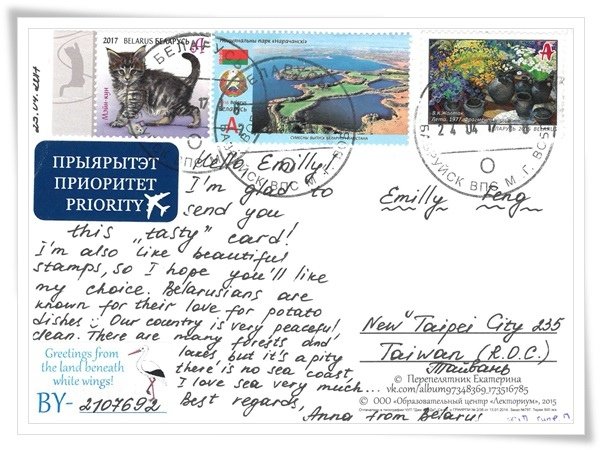 23.04.2017
2017 BELARUS БЕЛАРУСЬ
Мэйн-кун
нацыянальны парк «Нарачанскі»
A
В.К.Жолтак
БЕЛАРУСЬ
2 4 04 17
БАБРУЙСК ВПС М. Г. ВОБ
ПРЫЯРЫТЭТ
ПРИОРИТЕТ
PRIORITY
Hello Emilly!
I'm glad to
send you
this "tasty" card!
I'm also like beautiful
stamps, so I hope you'll like
my choice. Belarusians are
known for their love for potato
dishes :) Our country is very peaceful
clean. There are many forests and
lakes, but it's a pity
there is no sea coast,
I love sea very much...
Best regards,
Anna from Belarus
Greetings from
the land beneath
white wings!
BY- 2107692
Emilly Feng
New Taipei City 235
Taiwan (R.O.C.)
Тайвань
© Перепелятник Екатерина
vk.com/album97348369_173516785
© ООО «Образовательный центр «Лекториум», 2015